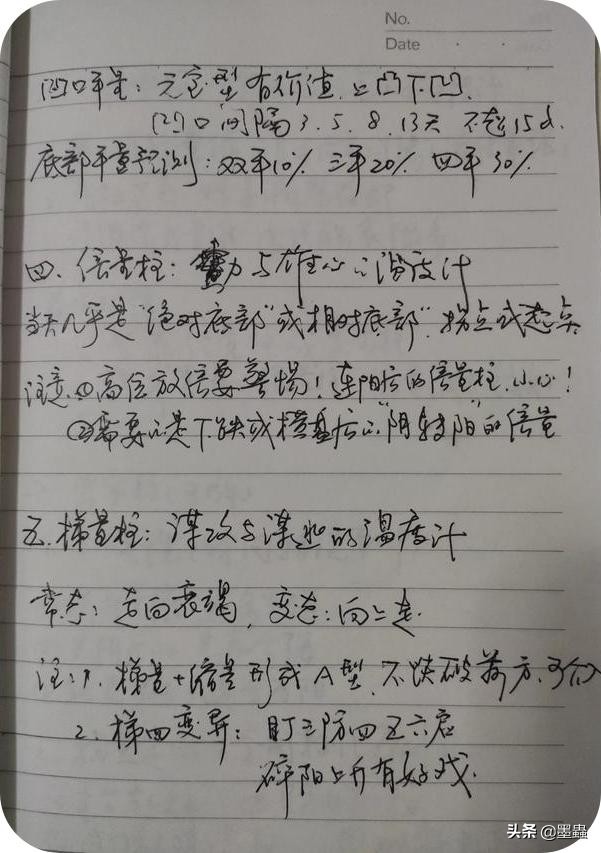 No.
Date
凹口平量：元宝型有价值，上凸下凹
凹口间隔3.5.8.13天 不超15d.
底部平量预测：双平10% 三平20% 四平30%
四、倍量柱：实力与雄心的温度计
当天几乎是“绝对底部”或“相对底部”，拐点或起点
注意①高位放倍要警惕！连阳后的倍量柱，小心！
②需要的是下跌或横盘后的“阴转阳”的倍量
五.梯量柱：谋攻与谋逃的温度计
常态：走向衰竭，变态：向上走.
注：1. 梯量+缩量形成A型，不跌破前方，可介
2. 梯四变异：盯三防四五六启
碎阳上升有好戏.
头条 @墨蟲